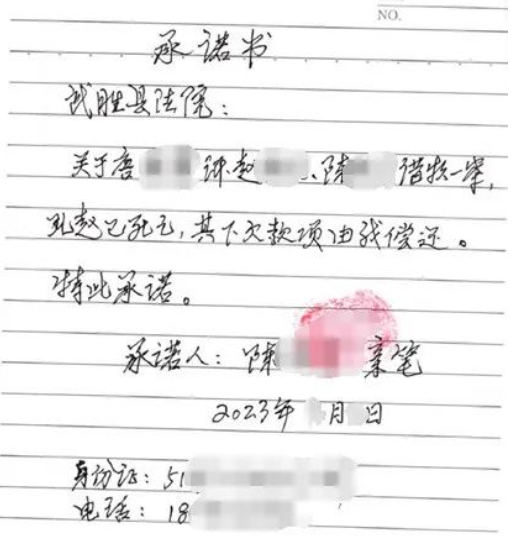 NO.
承诺书
武胜县法院：
关于唐 诉赵 、陈 借款一案，
现赵已死亡，其下欠款项由我偿还。
特此承诺。
承诺人：陈 亲笔
2023年 月 日
身份证：51
电话：18